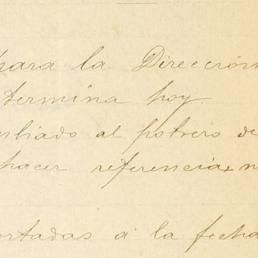 para la Dirección
termina hoy
al potrero de
hacer referencia
a la fecha